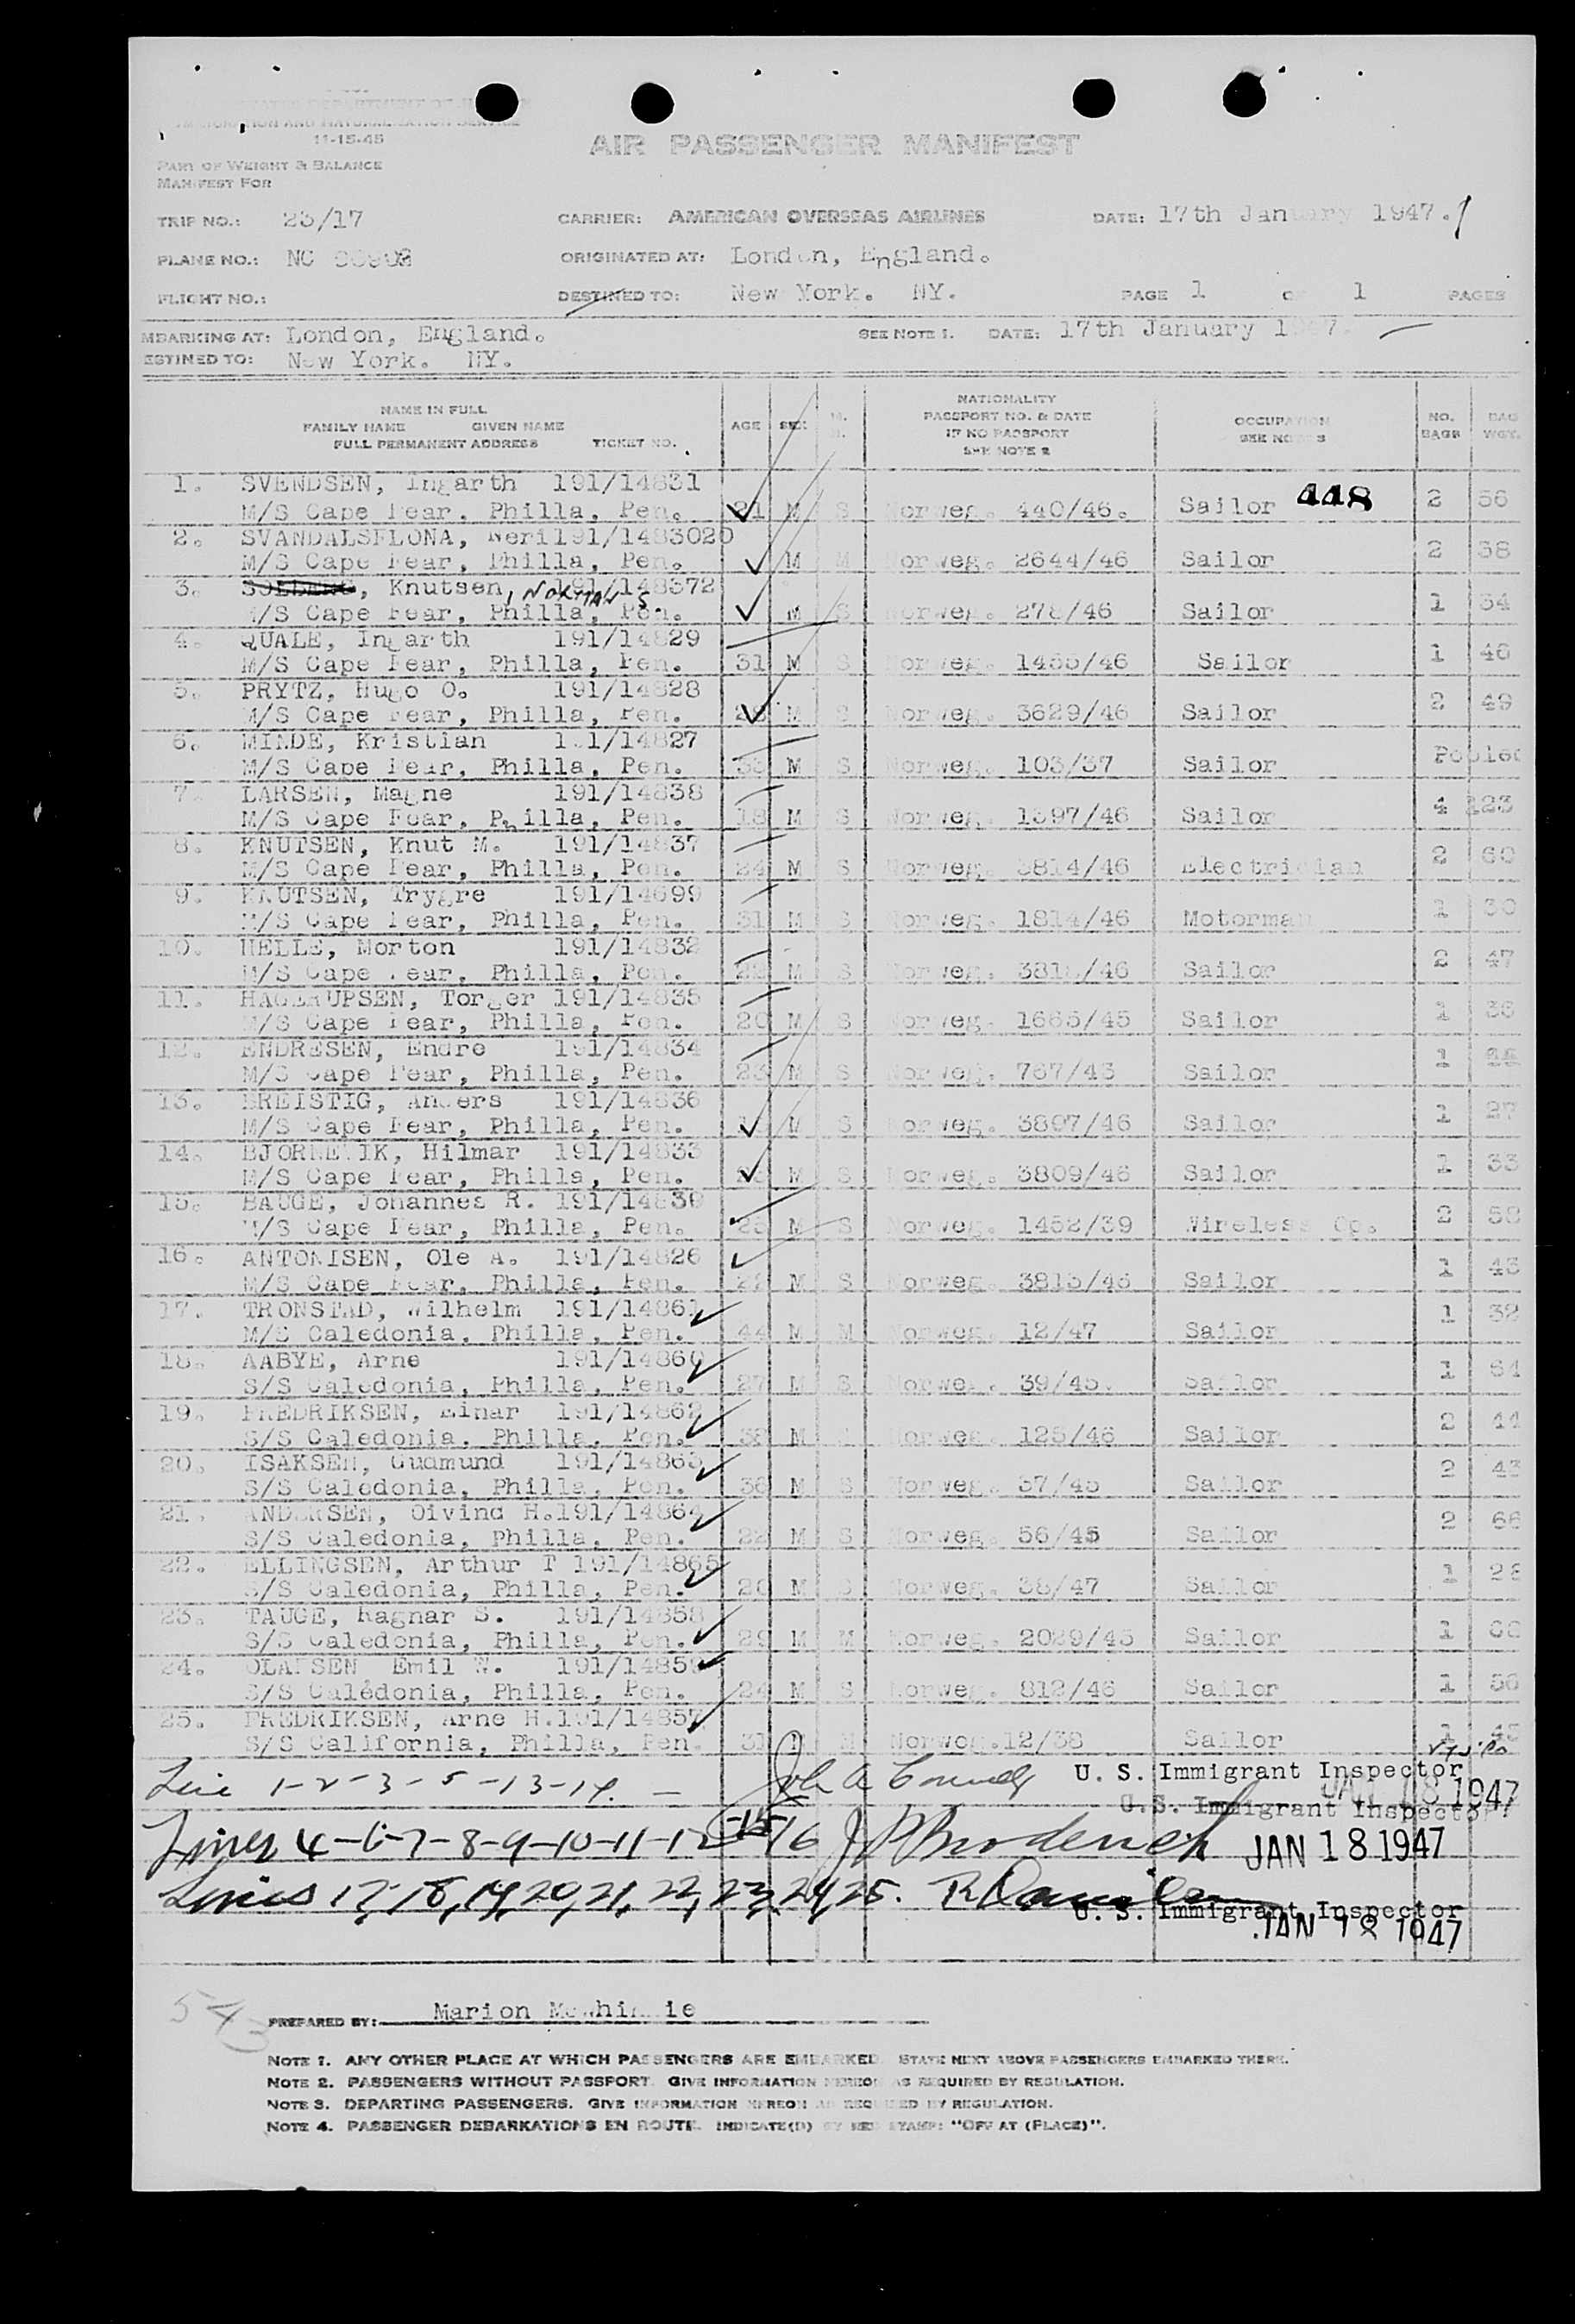 11-15-45
AIR PASSENGER MANIFEST
PART OF WEIGHT & BALANCE
MANIFEST FOR
TRIP NO.: 23/17 CARRIER: AMERICAN OVERSEAS AIRLINES DATE: 17th January 1947.
PLANE NO.: NC ORIGINATED AT: London, England.
FLIGHT NO.: DESTINED TO: New York. NY. PAGE 1 OF 1 PAGES
MBARKING AT: London, England. SEE NOTE 1. DATE: 17th January 1947.
ESTINED TO: New York. NY.
NAME IN FULL
FAMILY NAME GIVEN NAME
FULL PERMANENT ADDRESS TICKET NO.
AGE SEX
NATIONALITY
PASSPORT NO. & DATE
IF NO PASSPORT
SEE NOTE 2
OCCUPATION
SEE NOTE 3
NO.
BAGS
BAG
WGT.
1. SVENDSEN, Ingarth 191/14831
M/S Cape Fear, Philla, Pen. 21 M S Norweg. 440/46. Sailor 448 2 56
2. SVANDALSFLONA, 191/1483020
M/S Cape Fear, Philla, Pen. M M Norweg. 2644/46 Sailor 2 38
3. Knutsen, NORMAN S. 191/148372
M/S Cape Fear, Philla, Pen. M S Norweg. 278/46 Sailor 1 34
4. QUALE, Ingarth 191/14829
M/S Cape Fear, Philla, Pen. 31 M S Norweg. 1455/46 Sailor 1 46
5. PRYTZ, Hugo O. 191/14828
M/S Cape Fear, Philla, Pen. M S Norweg. 3629/46 Sailor 2 49
6. MINDE, Kristian 191/14827
M/S Cape Fear, Philla, Pen. M S Norweg. 103/37 Sailor Pooled
7. LARSEN, Magne 191/14838
M/S Cape Fear, Philla, Pen. 18 M S Norweg. 1397/46 Sailor 4 123
8. KNUTSEN, Knut M. 191/14837
M/S Cape Fear, Philla, Pen. 24 M S Norweg. 3814/46 Electrician 2 60
9. KNUTSEN, Trygre 191/14699
M/S Cape Fear, Philla, Pen. 31 M S Norweg. 1814/46 Motorman 1 30
10. HELLE, Morton 191/14832
M/S Cape Fear, Philla, Pen. 22 M S Norweg. Sailor 2 47
11. HAGERUPSEN, Torger 191/14835
M/S Cape Fear, Philla, Pen. 20 M S Norweg. 1665/45 Sailor 1 36
12. ENDRESEN, Endre 191/14834
M/S Cape Fear, Philla, Pen. 23 M S Norweg. 767/43 Sailor 1
13. BREISTIG, Anders 191/14836
M/S Cape Fear, Philla, Pen. M S Norweg. 3807/46 Sailor 1 27
14. Hilmar 191/14833
M/S Cape Fear, Philla, Pen. M S Norweg. 3809/46 Sailor 1 33
15. BAUGE, Johannes R. 191/14830
M/S Cape Fear, Philla, Pen. 25 M S Norweg. 1452/39 Wireless Op. 2 58
16. ANTONISEN, Ole A. 191/14826
M/S Cape Fear, Philla, Pen. M S Norweg. 3815/46 Sailor 1 43
17. TRONSTAD, Wilhelm 191/14861
M/S Caledonia, Philla, Pen. 44 M M Norweg. 12/47 Sailor 1 32
18. AABYE, Arne 191/14860
S/S Caledonia, Philla, Pen. 27 M S Norweg. 39/45. Sailor 1 64
19. FREDRIKSEN, Einar 191/14862
S/S Caledonia, Philla, Pen. 38 M Norweg. 125/46 Sailor 2 44
20. ISAKSEN, Gudmund 191/14863
S/S Caledonia, Philla, Pen. 36 M S Norweg. 37/45 Sailor 2 43
21. ANDERSEN, Oivind H. 191/14864
S/S Caledonia, Philla, Pen. 22 M S Norweg. 56/45 Sailor 2 66
22. ELLINGSEN, Arthur T 191/14865
S/S Caledonia, Philla, Pen. M S Norweg. 38/47 Sailor 1
23. TAUGE, Ragnar S. 191/14858
S/S Caledonia, Philla, Pen. 29 M M Norweg. 2029/45 Sailor 1
24. OLAFSEN Emil W. 191/14859
S/S Caledonia, Philla, Pen. 24 M S Norweg. 812/46 Sailor 1 56
25. FREDRIKSEN, Arne H. 191/14857
S/S California, Philla, Pen. 31 M M Norweg. 12/38 Sailor 1
Line 1-2-3-5-13-14. — John A U. S. Immigrant Inspector
JAN 18 1947
U.S. Immigrant Inspector
Lines 4-6-7-8-9-10-11-12-15-16 JAN 18 1947
Lines 17, 18, 19, 20, 21, 22, 23, 24, 25.
U. S. Immigrant Inspector
JAN 18 1947
543
PREPARED BY: Marion
NOTE 1. ANY OTHER PLACE AT WHICH PASSENGERS ARE EMBARKED. STATE NEXT ABOVE PASSENGERS EMBARKED THERE.
NOTE 2. PASSENGERS WITHOUT PASSPORT. GIVE INFORMATION HEREON AS REQUIRED BY REGULATION.
NOTE 3. DEPARTING PASSENGERS. GIVE INFORMATION HEREON AS REQUIRED BY REGULATION.
NOTE 4. PASSENGER DEBARKATIONS EN ROUTE. INDICATE(D) BY RED STAMP: "OFF AT (PLACE)".